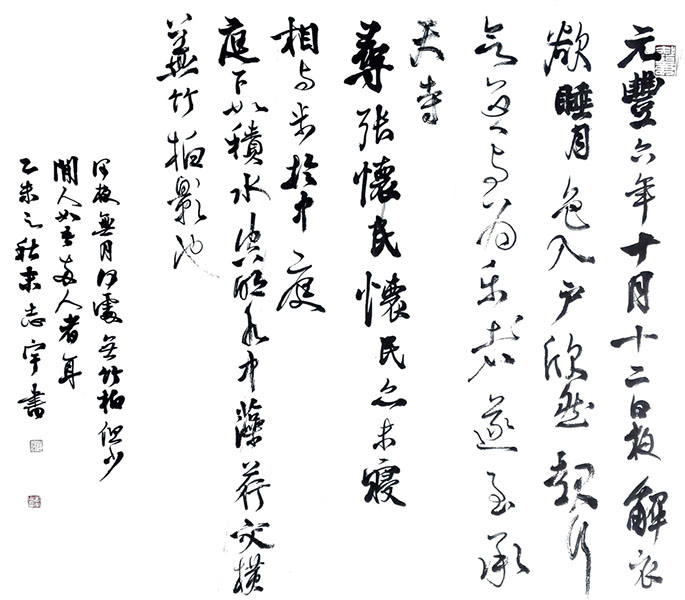 元豐六年十月十二日夜解衣
欲睡月色入戶欣然起行
念無与為樂者遂至承
天寺
尋張懷民懷民亦未寢
相与步於中庭
庭下如積水空明水中藻荇交橫
蓋竹柏影也
何夜無月何處無竹柏但少
閒人如吾兩人者耳
乙未之秋志宇書